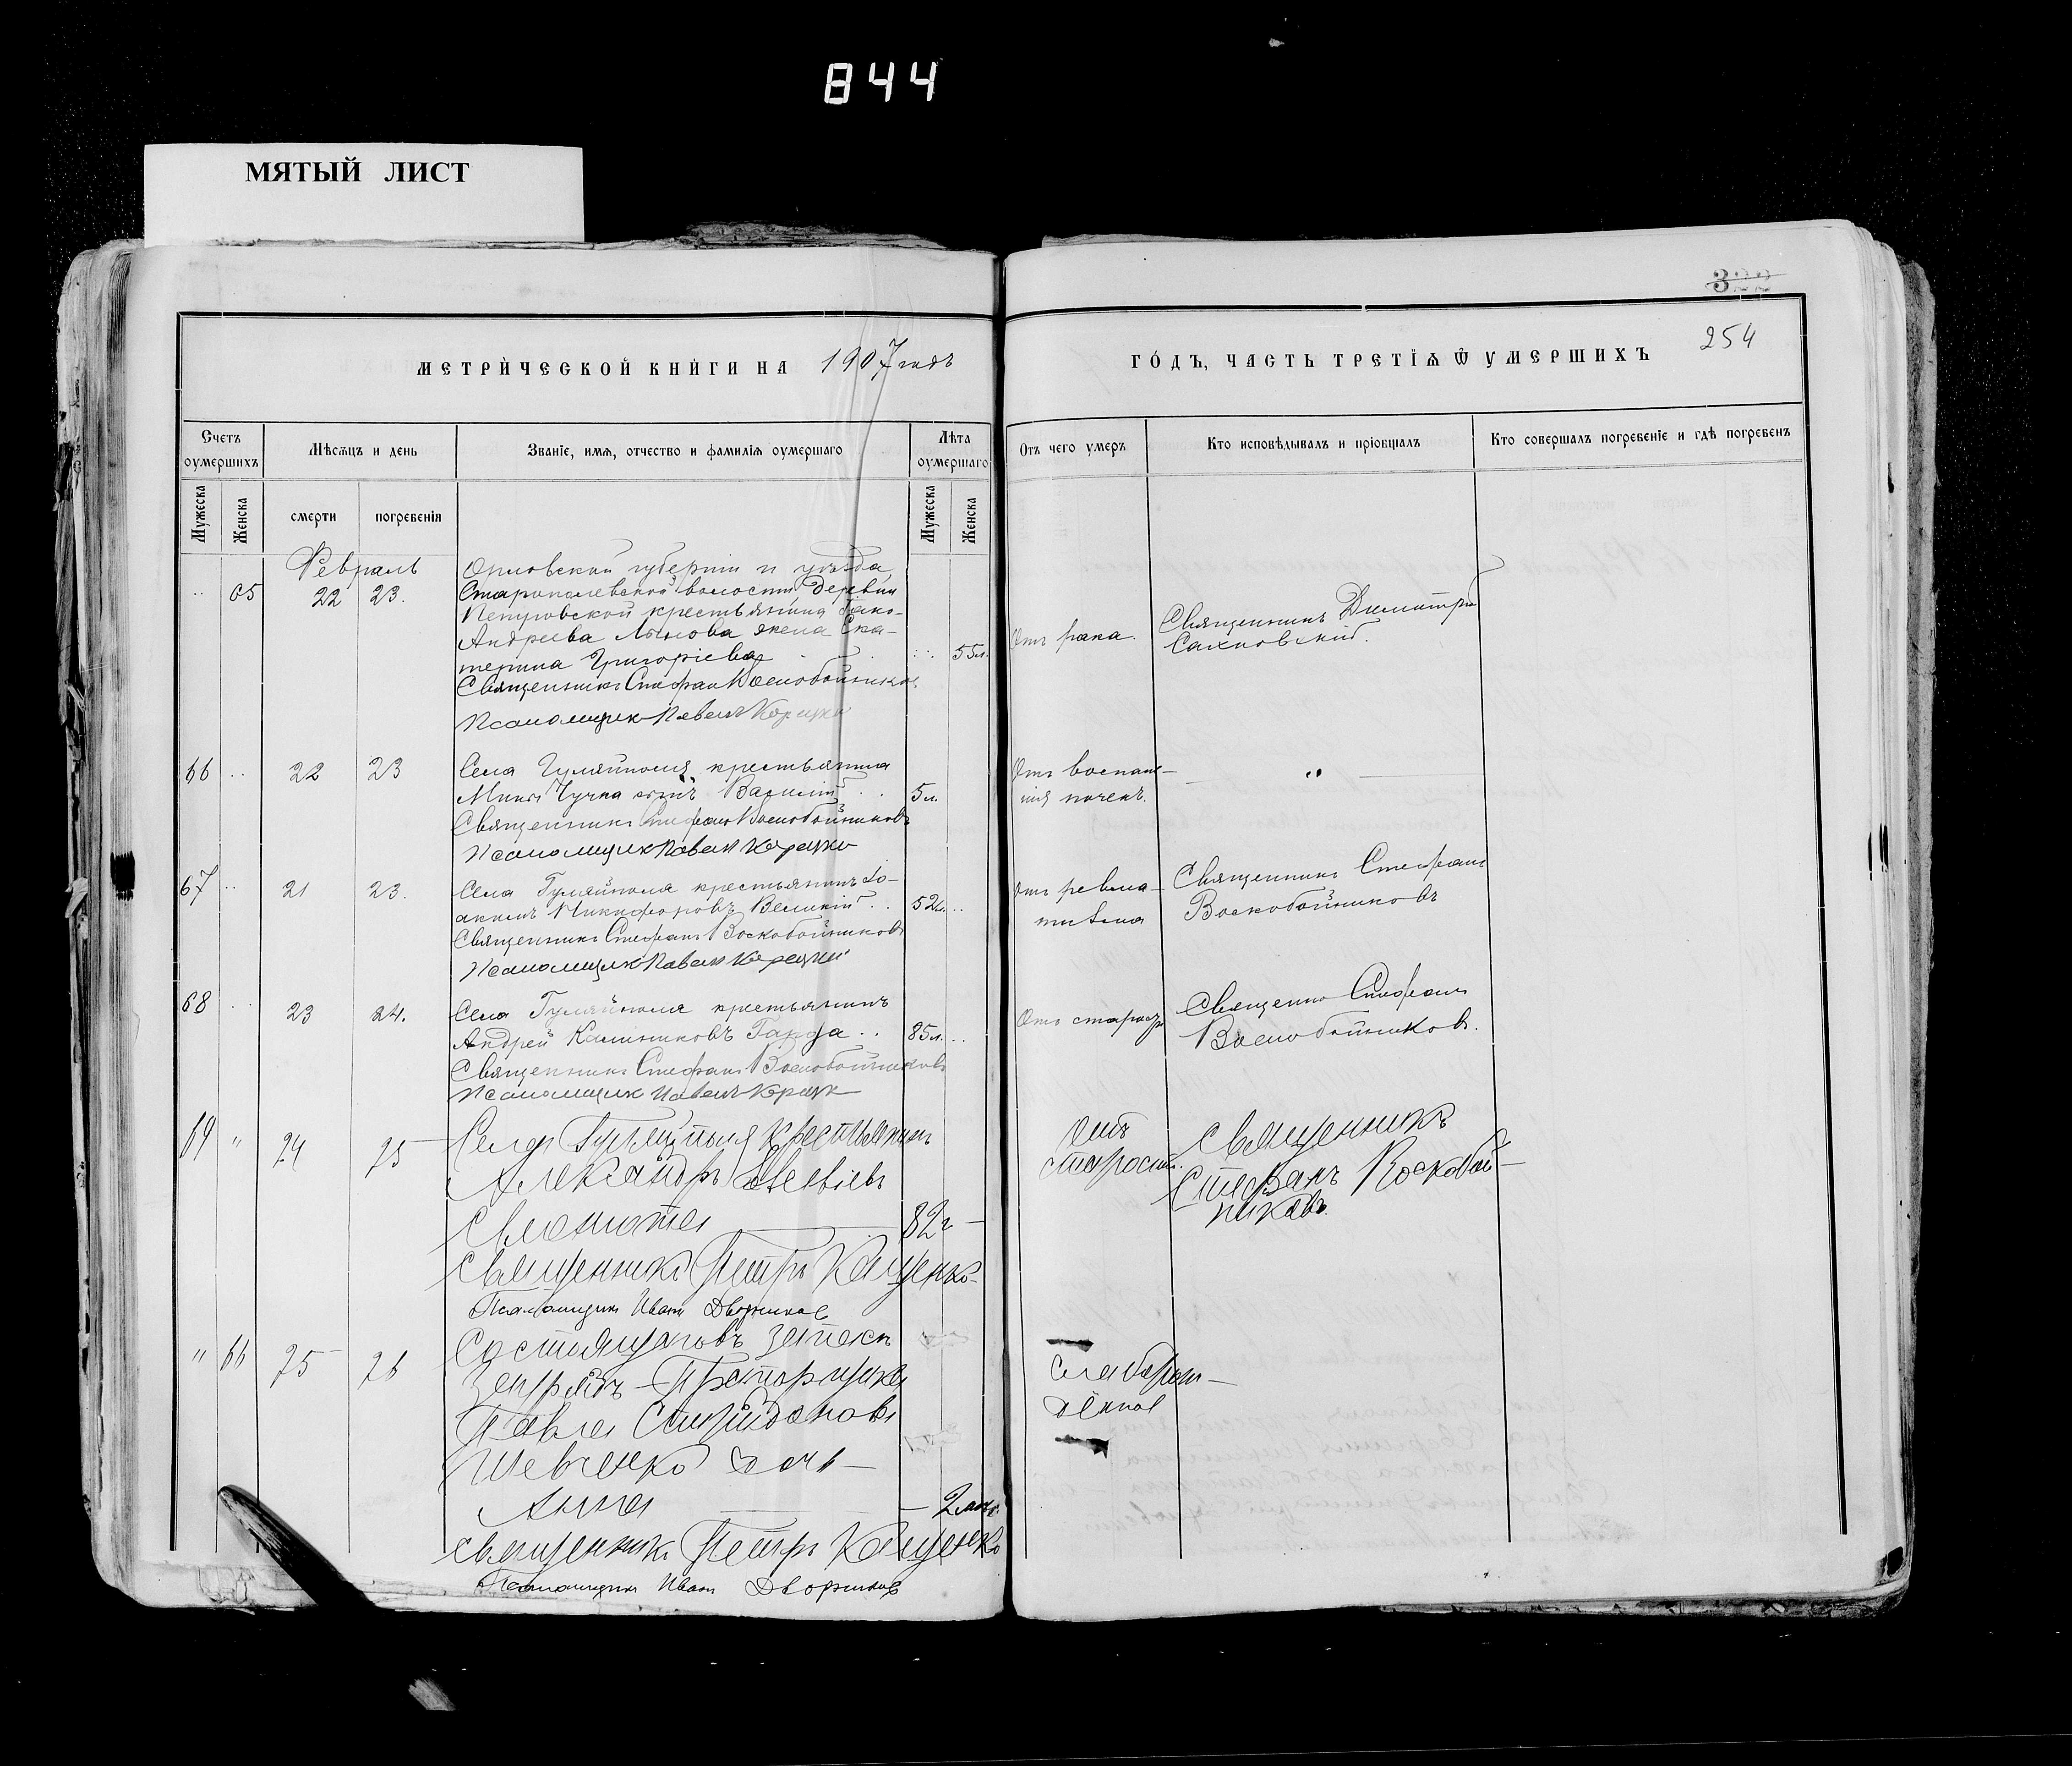 844
МЯТЫЙ ЛИСТ
322
МЕТРИ́ЧЕСКОЙ КНИ́ГИ НА 1907 годъ
ГО́ДЪ, ЧАСТЬ ТРЕТІѦ Ѿ УМЕРШИХЪ
254
Счетъ оумершихъ
Мѣсѧцъ и день
Званіе, имѧ, отчество и фамиліѧ оумершаго
Лѣта оумершаго
Отъ чего умеръ
Кто исповѣдывалъ и пріобщалъ
Кто совершалъ погребеніе и гдѣ погребенъ
Мужеска
Женска
смерти
погребеніѧ
Мужеска
Женска
Февраль
65 22 23.
Орловской губерніи и уѣзда
волости деревни
Петровской крестьянина
Андреева жена Ека-
терина Григоріева
55л.
Отъ рака.
Священникъ Димитрій
Сахновскій.
Священникъ Стефанъ Воскобойниковъ
Псаломщикъ Павелъ Корецкій
66 22 23
Села Гуляйполя крестьянина
сынъ Василій
5л.
Отъ воспале-
нія почекъ.
Священникъ Стефанъ Воскобойниковъ
Псаломщикъ Павелъ Корецкій
67 21 23.
Села Гуляйполя крестьянинъ Іо-
акимъ Никифоровъ Великій
52л.
Отъ ревма-
тизма
Священникъ Стефанъ
Воскобойниковъ
Священникъ Стефанъ Воскобойниковъ
Псаломщикъ Павелъ Корецкій
68 23 24.
Села Гуляйполя крестьянинъ
Андрей
85л.
Отъ старости
Священникъ Стефанъ
Воскобойниковъ.
Священникъ Стефанъ Воскобойниковъ
Псаломщикъ Павелъ Корецкій
69 " 24 25
Села Гуляйполя крестьянинъ
Александръ
82г
Отъ
старости.
Священникъ
Стефанъ Воскобой-
никовъ.
Священникъ Петръ Кащенко
Псаломщикъ Иванъ Дворниковъ
" 66 25 26
Состоящаго въ запасѣ
Павла Спиридонова
Шевченко дочь
Анна
2 мѣс.
Слаборож-
денная
Священникъ Петръ Кащенко
Псаломщикъ Иванъ Дворниковъ